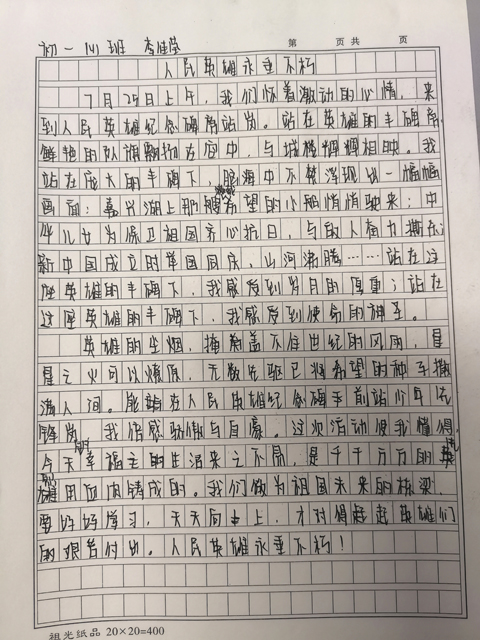 初一 班 李佳莹
第 页共 页
人民英雄永垂不朽
7月25日上午，我们怀着激动的心情，来
到人民英雄纪念碑席站岗。站在英雄的丰碑席
鲜艳的队旗飘扬在空中，与 辉相映。我
站在庞大的丰碑下，脑海中不禁浮现出一幅幅
画面：嘉兴湖上那艘希望的小船悄悄驶来；中
华儿女为保卫祖国齐心抗日，与敌人奋力撕杀；
新中国成立的举国同庆，山河沸腾……站在这
座英雄的丰碑下，我感受到岁月的厚重；站在
这座英雄的丰碑下，我感受到使命的神圣。
英雄的尘烟，掩 盖不住世纪的风雨，星
星之火可以燎原，无数先驱已将希望的种子撒
满人间。能站在人民英雄纪念碑手前站少年先
锋岗，我倍感骄傲与自豪。这次活动使我懂得，
今天幸福 的生活来之不易，是千千万万的英
雄用血肉铸成的。我们做为祖国未来的栋梁，
要好好学习，天天向上，才对得起 英雄们
的艰苦付出。人民英雄永垂不朽！
祖光纸品 20×20=400